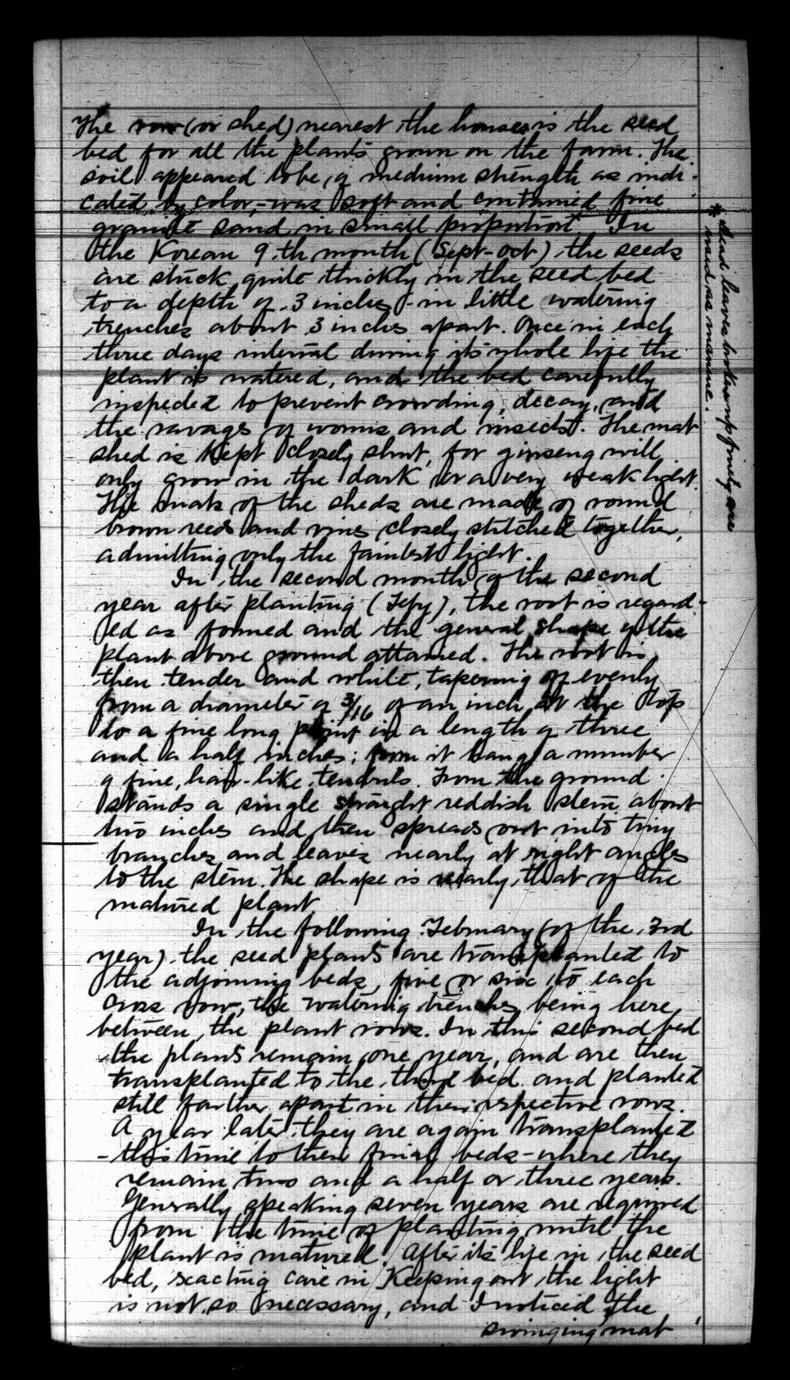 The row (or shed) nearest the houses is the seed
bed for all the plants grown on the farm. The
soil appeared to be, a medium strength as indi-
cated by color,-was soft and contained fine
granite sand in small proportion.* In
the Korean 9.th month (Sept-Oct) the seeds
are stuck quite thickly in the seed bed
to a depth of .3 inches - in little watering
trenches about 3 inches apart. Once in each
three days interval during its whole life the
plant is watered, and the bed carefully
inspected to prevent crowding, decay, and
the ravages of worms and insects. The mat
shed is kept closely shut, for ginseng will
only grow in the dark or a very weak light.
The mats of the sheds are made of round
brown reeds and vines closely stitched together,
admitting only the faintest light.
In the second month of the second
year after planting (Feby), the root is regard-
ed as formed and the general shape of the
plant above ground attained. The root is
then tender and white, tapering off evenly
from a diameter of 3/16 of an inch at the top
to a fine long point in a length of three
and a half inches; from it hang a number
of fine, hair-like tendrils. From the ground
stands a single straight reddish stem about
two inches and then spreads out into tiny
branches and leaves nearly at right angles
to the stem. The shape is nearly that of the
matured plant
In the following February (of the 3rd
year) the seed plants are transplanted to
the adjoining beds, five or six to each
cross row, the watering trenches being here
between the plant rows. In this second bed
the plants remain one year, and are then
transplanted to the third bed and planted
still farther apart in their respective rows.
A year later they are again transplanted
- this time to their final beds - where they
remain two and a half or three years.
Generally speaking seven years are required
from the time of planting until the
plant is matured. After its life in the seed
bed, exacting care in keeping out the light
is not so necessary, and I noticed the
swinging mat
* Dead leaves broken up finely are
used as manure.